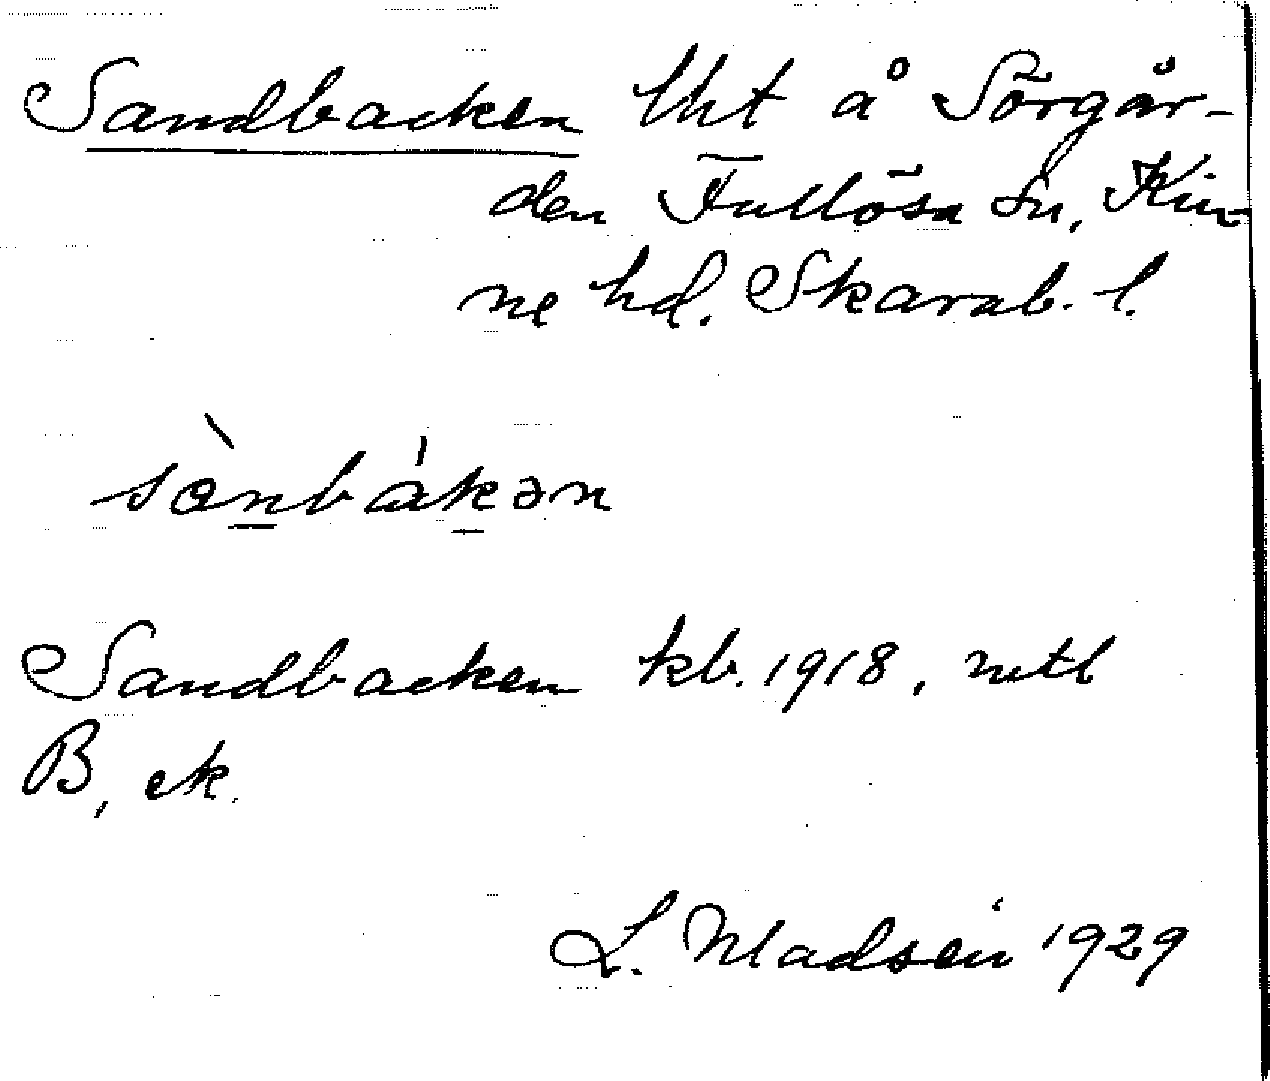 Sandbacken lht å Sörgår-
den Fullösa sn, Kin-
ne hd. Skarab. l.
sɑ̀nbákən
Sandbacken kb. 1918, mtl
B, ek.
L. Madsén 1929